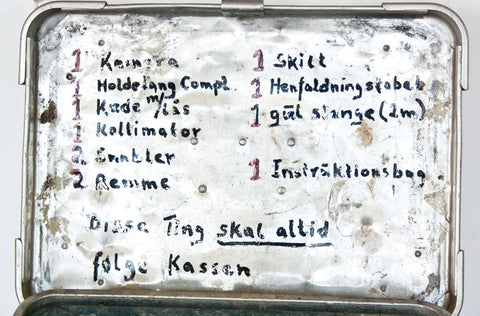 1 Kamera
1 Holdetang Compl.
1 Kæde m/lås
1 Kollimator
2 Snabler
2 Remme
1 Skilt
1 Henfaldningstabel
1 gul stange (2m)
1 Instruktionsbog
Disse Ting skal altid
følge Kassen